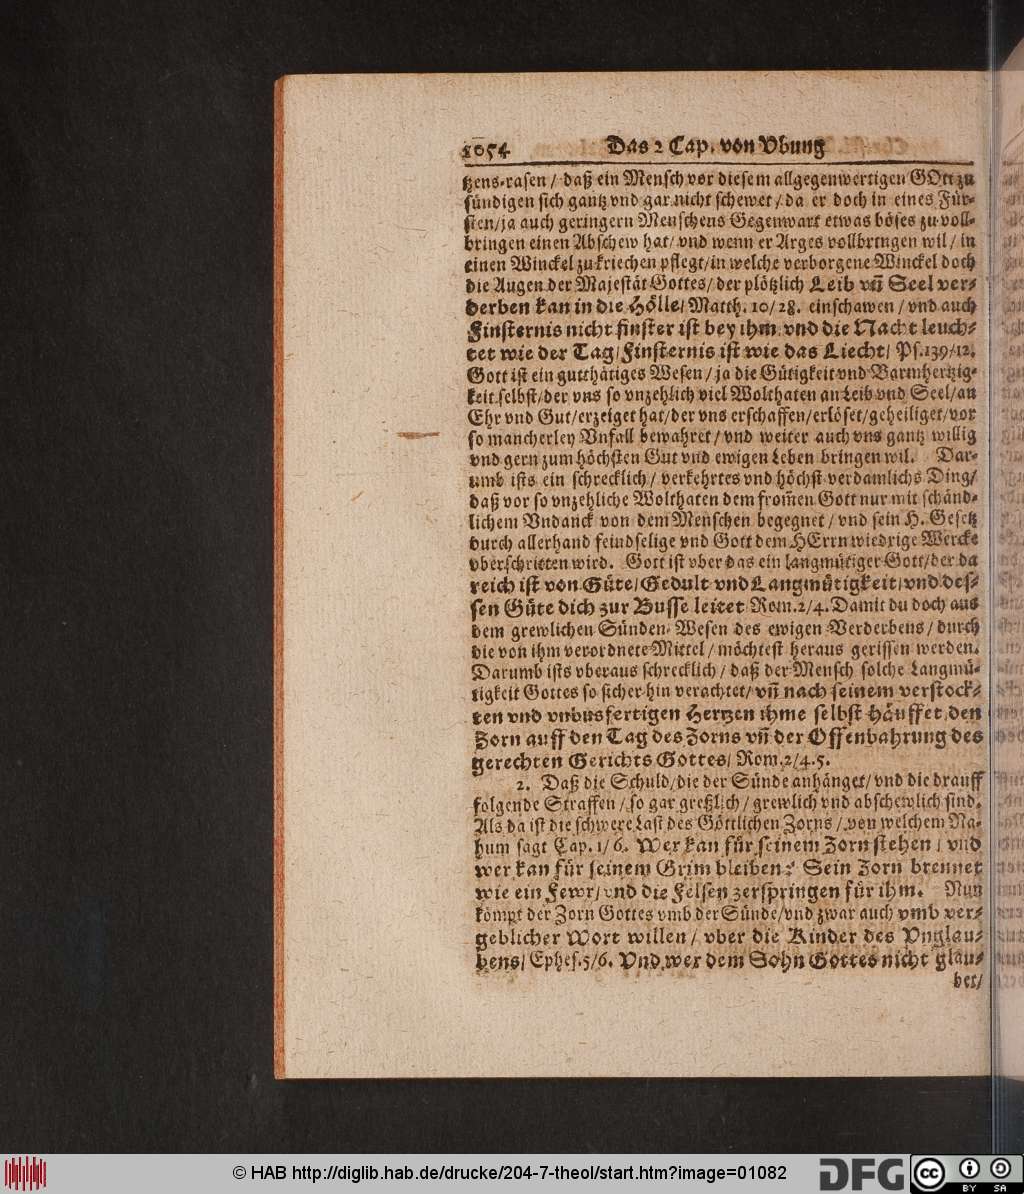 1054 Das 2 Cap. von Vbung
tzens-rasen / daß ein Mensch vor diesem allgegenwertigen GOtt zu
sündigen sich gantz vnd gar nicht schewet / da er doch in eines Für-
sten/ja auch geringern Menschens Gegenwart etwas böses zu voll-
bringen einen Abschew hat/ vnd wenn er Arges vollbringen wil / in
einen Winckel zu kriechen pflegt/in welche verborgene Winckel doch
die Augen der Majestät Gottes/ der plötzlich Leib vñ Seel ver-
derben kan in die Hölle/ Matth. 10/28. einschawen / vnd auch
Finsternis nicht finster ist bey ihm/ vnd die Nacht leuch-
tet wie der Tag/ Finsternis ist wie das Liecht/ Ps.139/12.
Gott ist ein gutthätiges Wesen / ja die Gütigkeit vnd Barmhertzig-
keit selbst/der vns so vnzehlich viel Wolthaten an Leib vnd Seel/an
Ehr vnd Gut/erzeiget hat/der vns erschaffen/erlöset/geheiliget/vor
so mancherley Vnfall bewahret / vnd weiter auch vns gantz willig
vnd gern zum höchsten Gut vnd ewigen Leben bringen wil. Dar-
umb ists ein schrecklich / verkehrtes vnd höchst verdamlichs Ding/
daß vor so vnzehliche Wolthaten dem from̃en Gott nur mit schänd-
lichem Vndanck von dem Menschen begegnet / vnd sein H. Gesetz
durch allerhand feindselige vnd Gott dem HErrn wiedrige Wercke
vberschritten wird. Gott ist vber das ein langmütiger Gott/der da
reich ist von Güte/ Gedult vnd Langmütigkeit/ vnd des-
sen Güte dich zur Busse leitet Rom.2/4. Damit du doch aus
dem grewlichen Sünden-Wesen des ewigen Verderbens / durch
die von ihm verordnete Mittel / möchtest heraus gerissen werden.
Darumb ists vberaus schrecklich / daß der Mensch solche Langmü-
tigkeit Gottes so sicher hin verachtet/ vñ nach seinem verstock-
ten vnd vnbusfertigen Hertzen ihme selbst häuffet den
Zorn auff den Tag des Zorns vñ der Offenbahrung des
gerechten Gerichts Gottes/ Rom.2/4.5.
2. Daß die Schuld/die der Sünde anhänget/ vnd die drauff
folgende Straffen / so gar greßlich / grewlich vnd abschewlich sind.
Als da ist die schwere Last des Göttlichen Zorns / von welchem Na-
hum sagt Cap. 1/6. Wer kan für seinem Zorn stehen / vnd
wer kan für seinem Grim bleiben? Sein Zorn brennet
wie ein Fewr/ vnd die Felsen zerspringen für ihm. Nun
kömpt der Zorn Gottes vmb der Sünde/vnd zwar auch vmb ver-
geblicher Wort willen / vber die Kinder des Vnglau-
bens/ Ephes.5/6. Vnd wer dem Sohn Gottes nicht gläu-
bet/
© HAB http://diglib.hab.de/drucke/204-7-theol/start.htm?image=01082 DFG cc BY SA